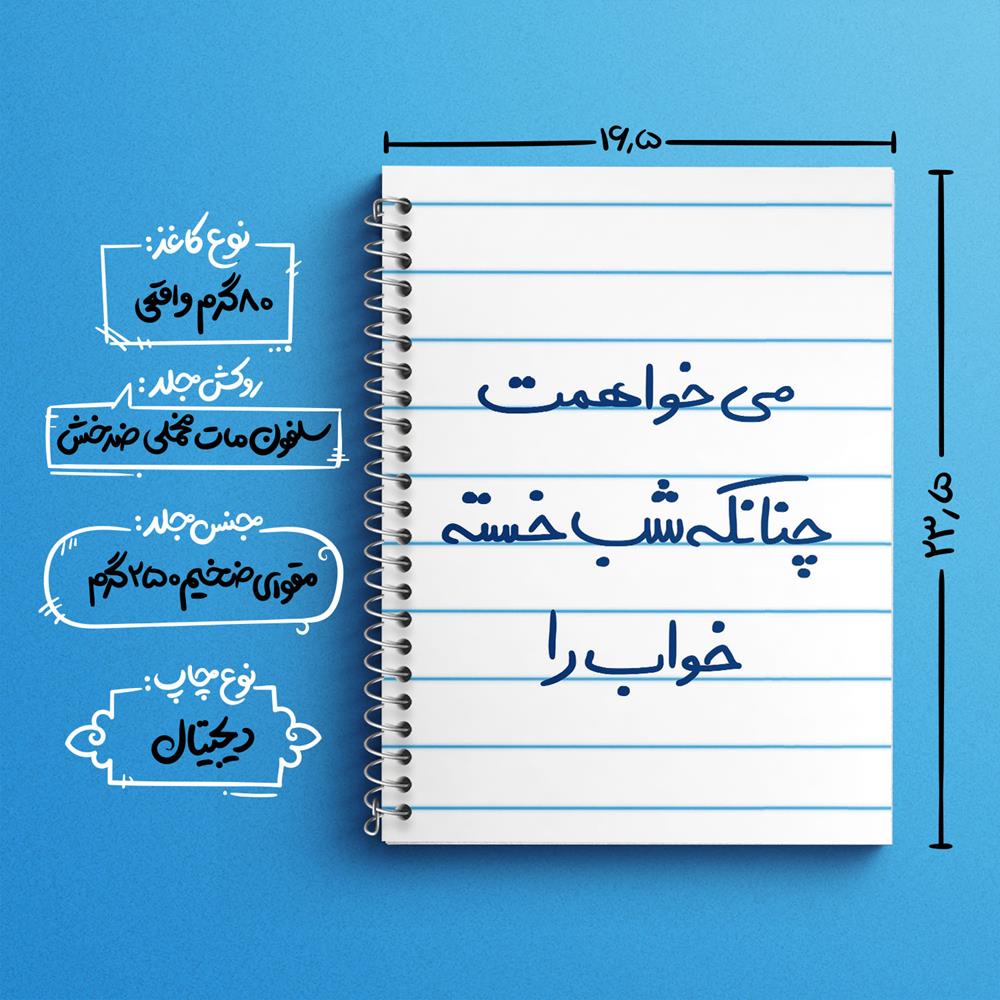 ۱۶٫۵
۲۳٫۵
می خواهمت
چنانکه شب خسته
خواب را
نوع کاغذ:
۸۰ گرم واقعی
روکش جلد:
سلفون مات مخملی ضدخش
جنس جلد:
مقوای ضخیم ۲۵۰ گرم
نوع چاپ:
دیجیتال